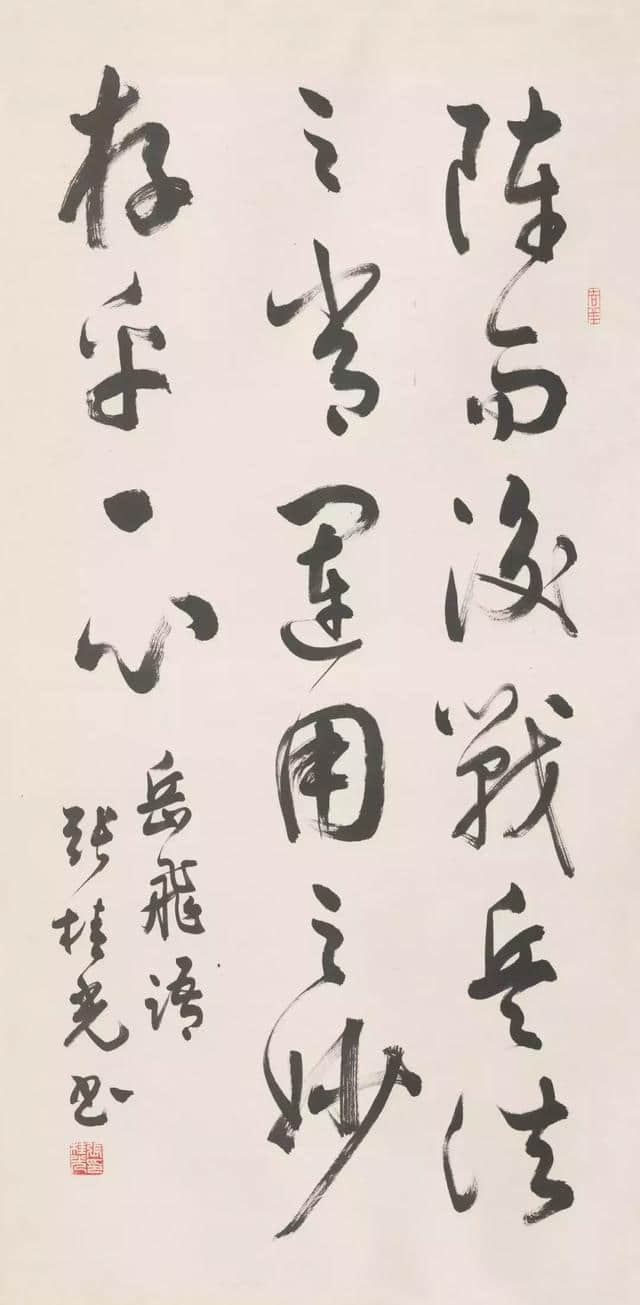 陣而後戰兵法
之常運用之妙
存乎一心
岳飛語
張桂光書